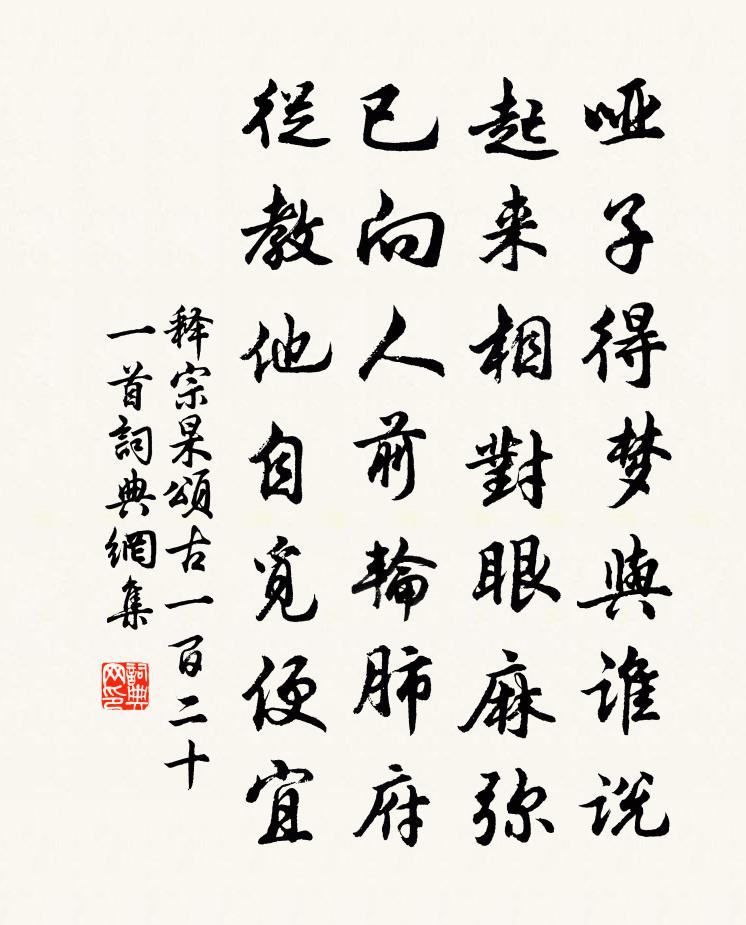 哑子得梦與谁说
起来相對眼麻弥
已向人前輪肺府
從教他自覓便宜
释宗杲頌古一百二十
一首詞典網集
詞典
网印